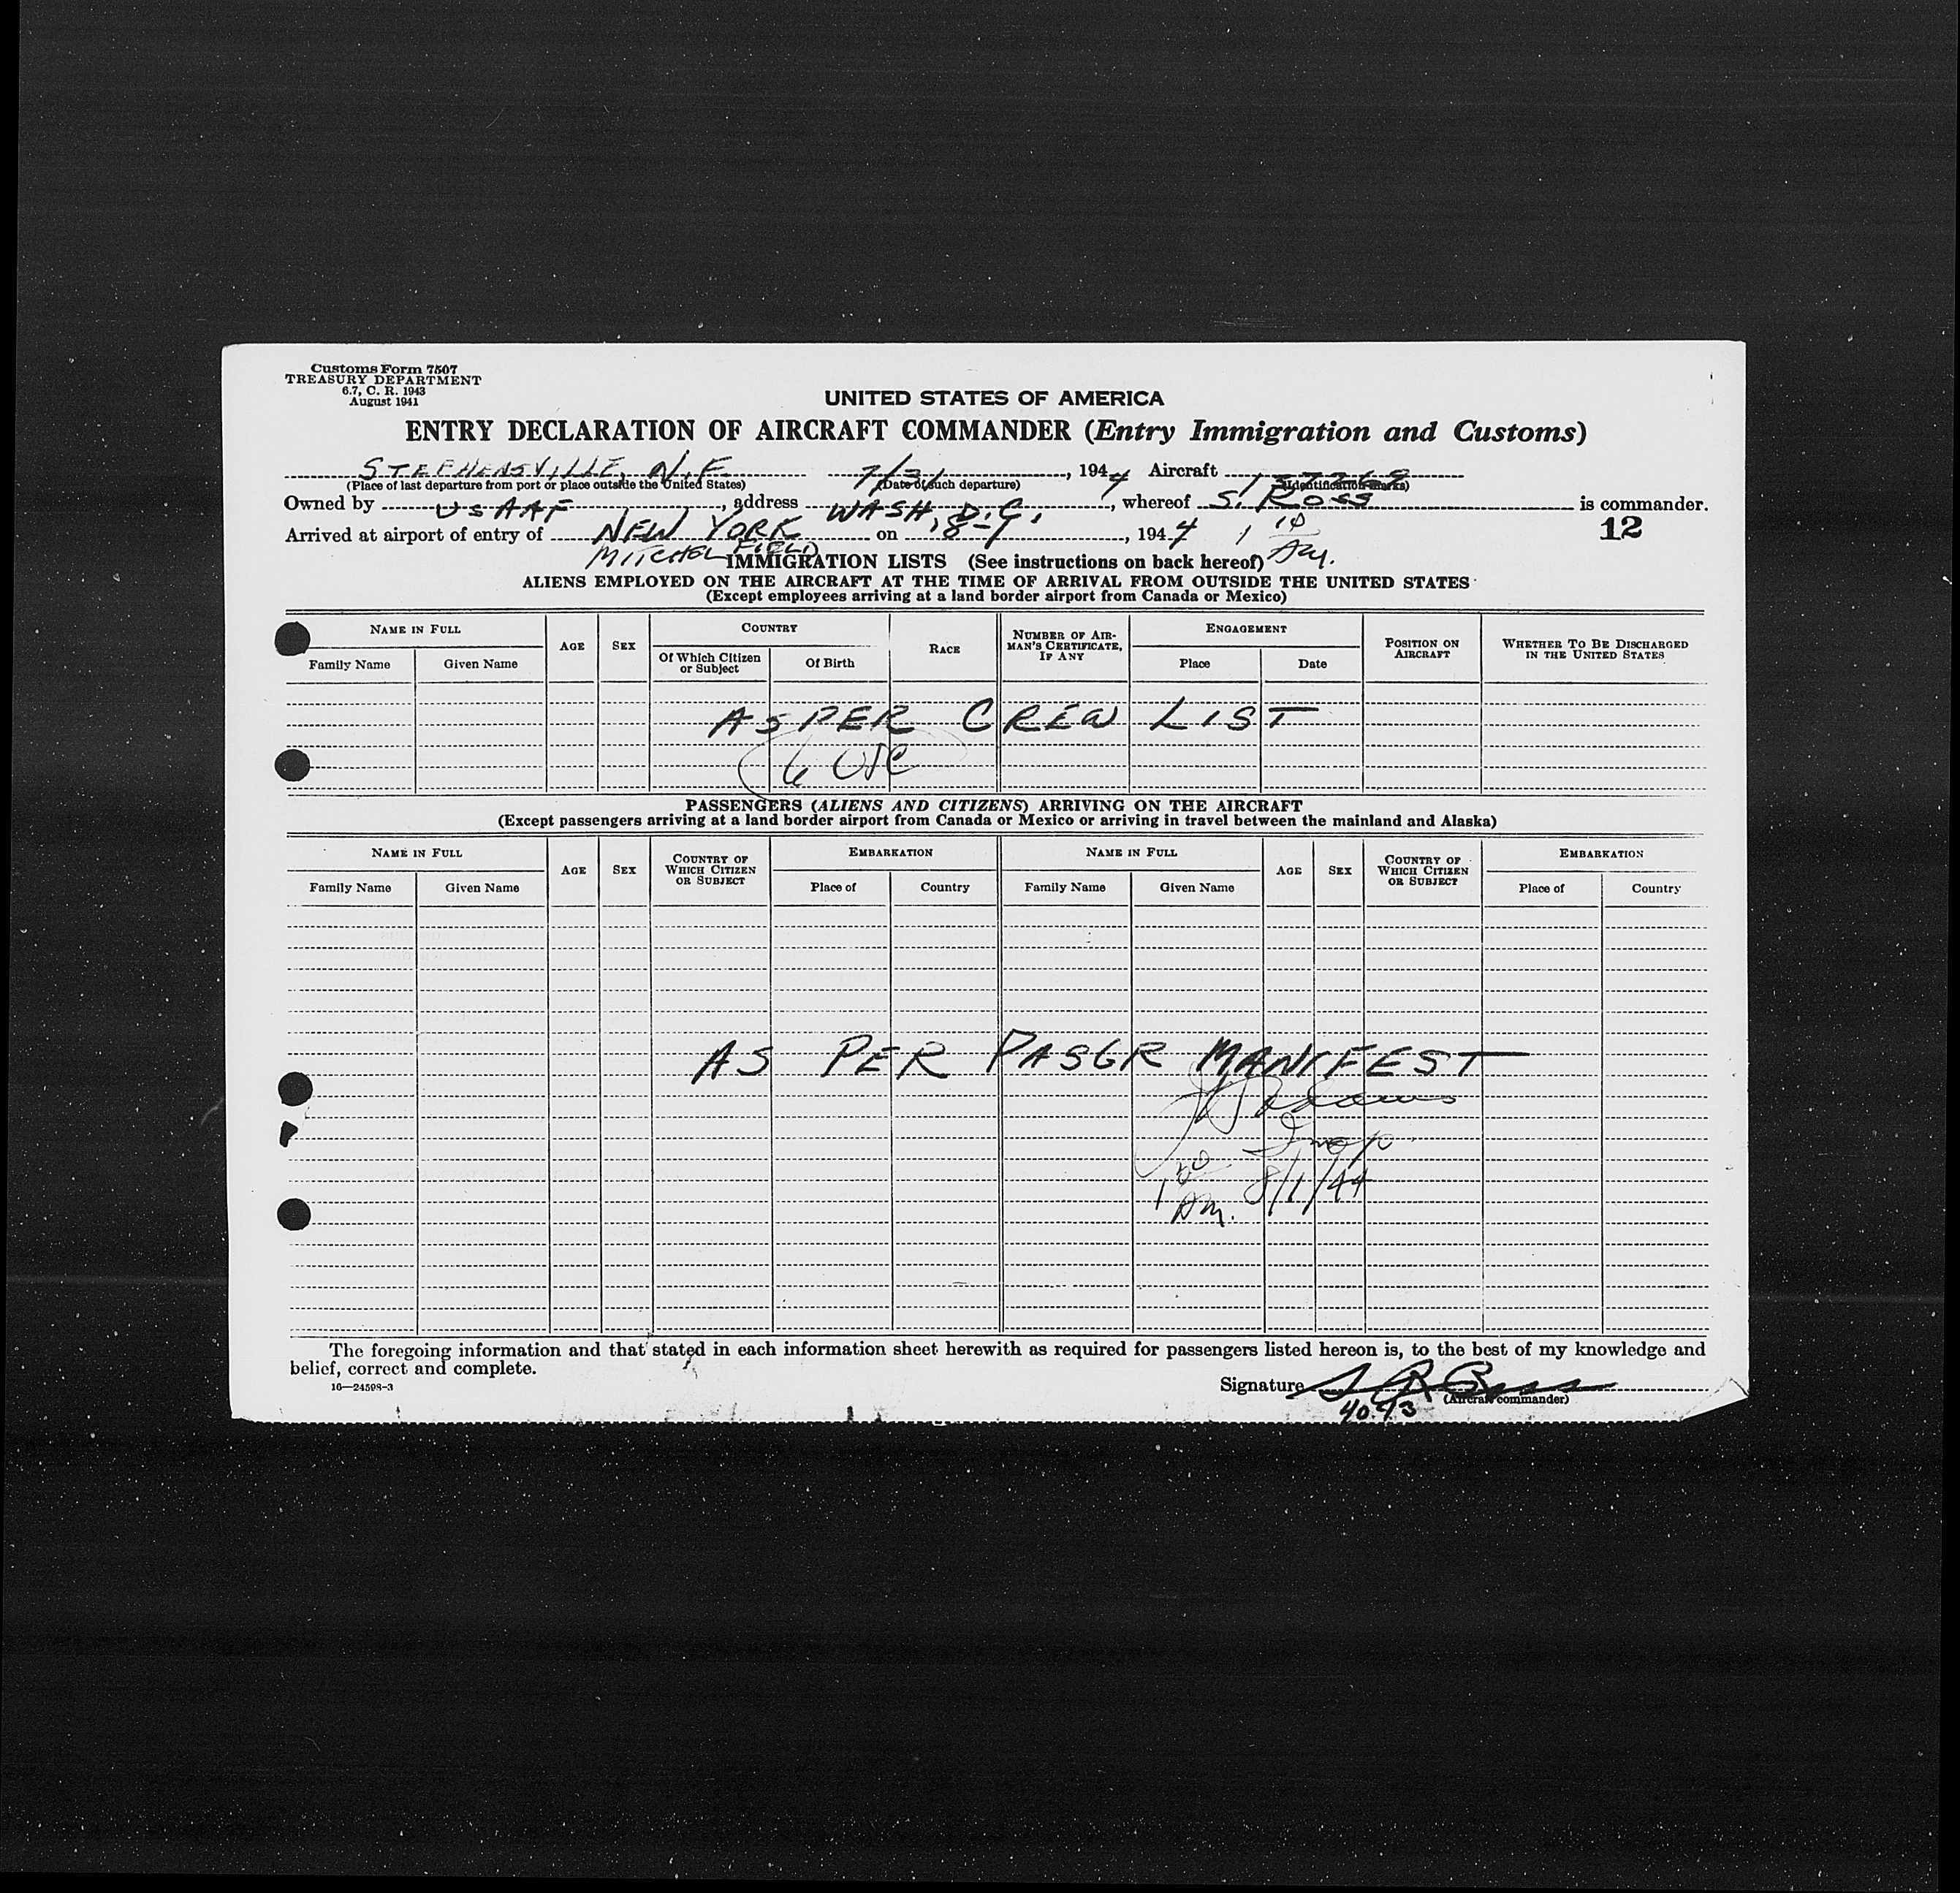 Customs Form 7507
TREASURY DEPARTMENT
6.7, C. R. 1943
August 1941
UNITED STATES OF AMERICA
ENTRY DECLARATION OF AIRCRAFT COMMANDER (Entry Immigration and Customs)
STEPHENSVILLE, N.F. 7/31, 1944 Aircraft
(Place of last departure from port or place outside the United States) (Date of such departure) (Identification marks)
Owned by USAAF, address WASH, D.C., whereof S. ROSS is commander.
Arrived at airport of entry of NEW YORK on 8-1, 1944 1 10 AM. 12
MITCHEL FIELD
IMMIGRATION LISTS (See instructions on back hereof)
ALIENS EMPLOYED ON THE AIRCRAFT AT THE TIME OF ARRIVAL FROM OUTSIDE THE UNITED STATES
(Except employees arriving at a land border airport from Canada or Mexico)
NAME IN FULL AGE SEX COUNTRY RACE NUMBER OF AIRMAN'S CERTIFICATE, IF ANY ENGAGEMENT POSITION ON AIRCRAFT WHETHER TO BE DISCHARGED IN THE UNITED STATES
Family Name Given Name Of Which Citizen or Subject Of Birth Place Date
AS PER CREW LIST
6 USC
PASSENGERS (ALIENS AND CITIZENS) ARRIVING ON THE AIRCRAFT
(Except passengers arriving at a land border airport from Canada or Mexico or arriving in travel between the mainland and Alaska)
NAME IN FULL AGE SEX COUNTRY OF WHICH CITIZEN OR SUBJECT EMBARKATION NAME IN FULL AGE SEX COUNTRY OF WHICH CITIZEN OR SUBJECT EMBARKATION
Family Name Given Name Place of Country Family Name Given Name Place of Country
AS PER PASGR MANIFEST
Adams
Insp
1 20 AM. 8/1/44
The foregoing information and that stated in each information sheet herewith as required for passengers listed hereon is, to the best of my knowledge and
belief, correct and complete.
16—24598-3
Signature S R Ross
(Aircraft commander)